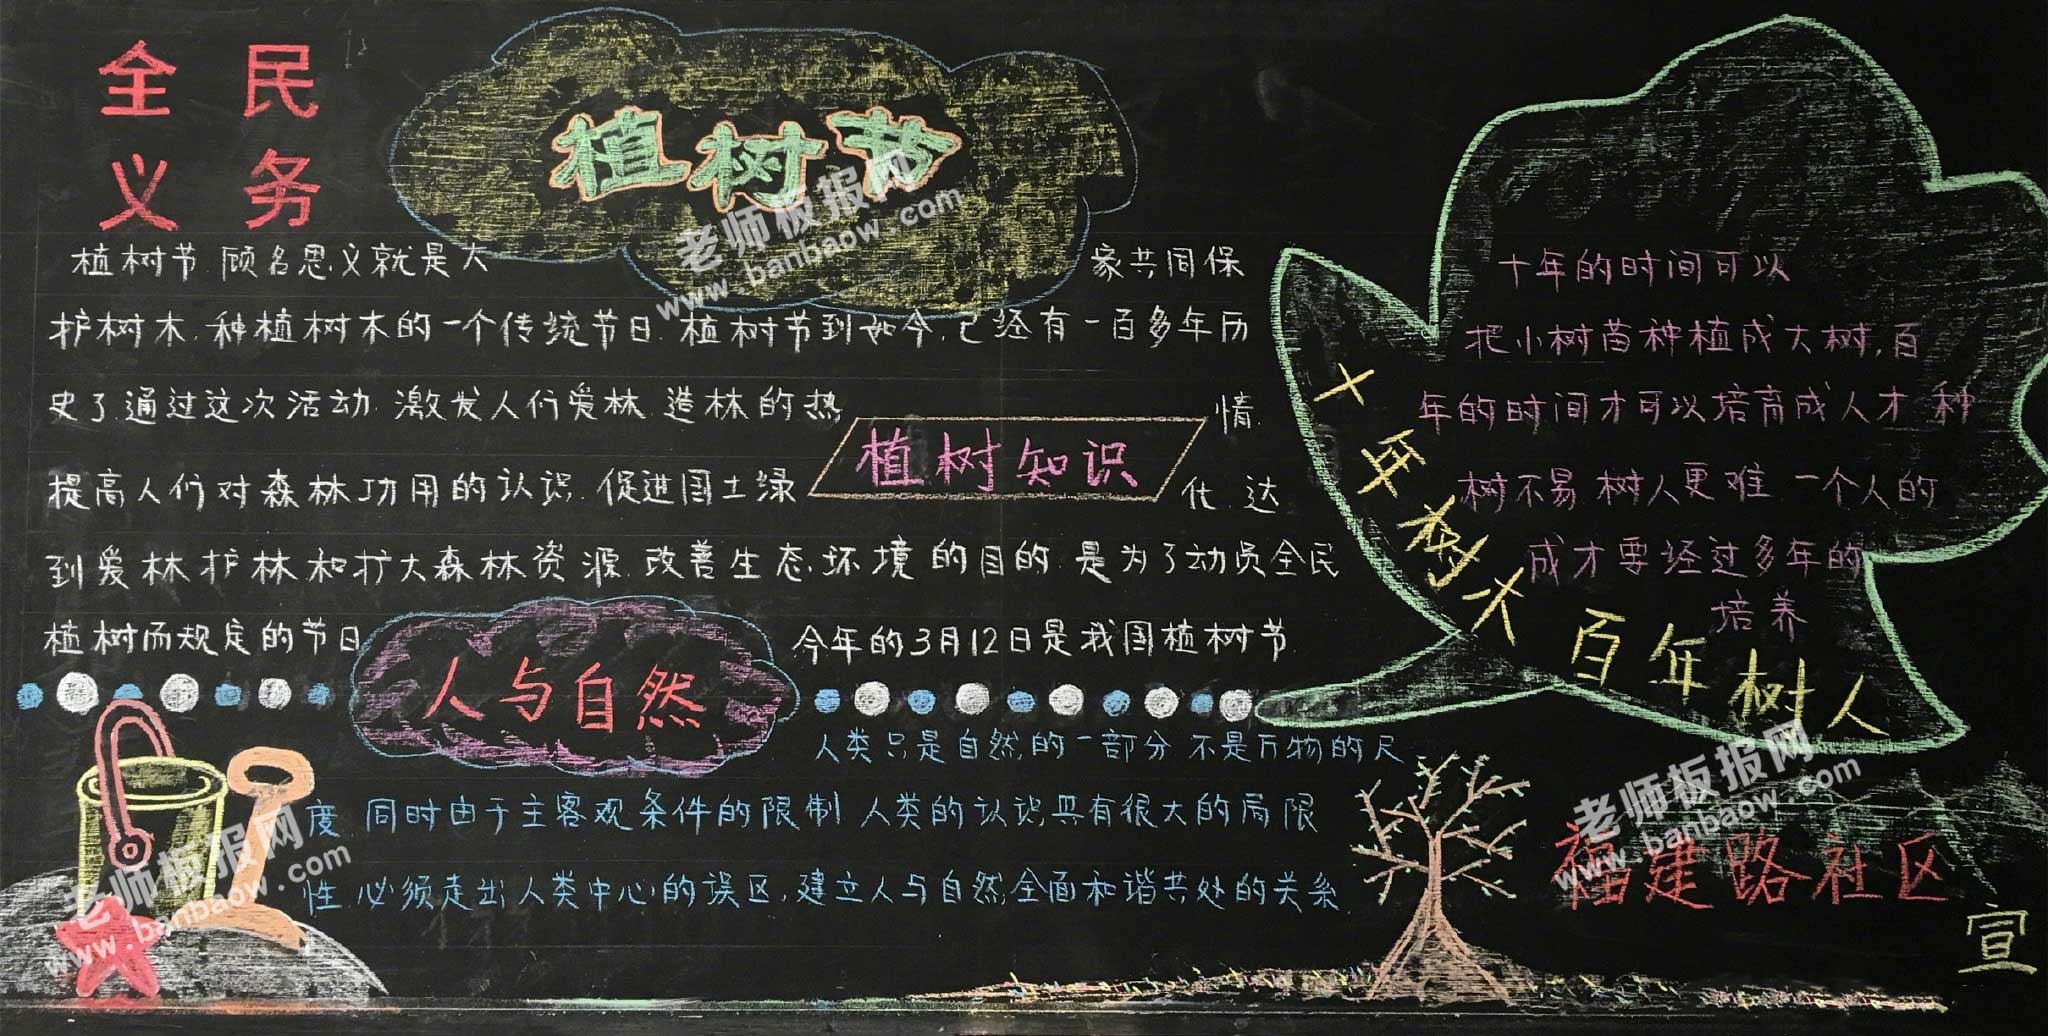 全民
义务
植树节
植树节.顾名思义就是大家共同保
护树木.种植树木的一个传统节日.植树节到如今.已经有一百多年历
史了.通过这次活动.激发人们爱林.造林的热情.
植树知识
提高人们对森林功用的认识.促进国土绿化.达
到爱林护林和扩大森林资源.改善生态.环境的目的.是为了动员全民
植树而规定的节日 今年的3月12日是我国植树节.
人与自然
人类只是自然的一部分.不是万物的尺
度.同时由于主客观条件的限制.人类的认识具有很大的局限
性.必须走出人类中心的误区,建立人与自然全面和谐共处的关系.
十年树木百年树人
十年的时间可以
把小树苗种植成大树.百
年的时间才可以培育成人才.种
树不易 树人更难 一个人的
成才要经过多年的
培养
福建路社区
宣
老师板报网
www.banbaow.com
老师板报网
www.banbaow.com
老师板报网
www.banbaow.com